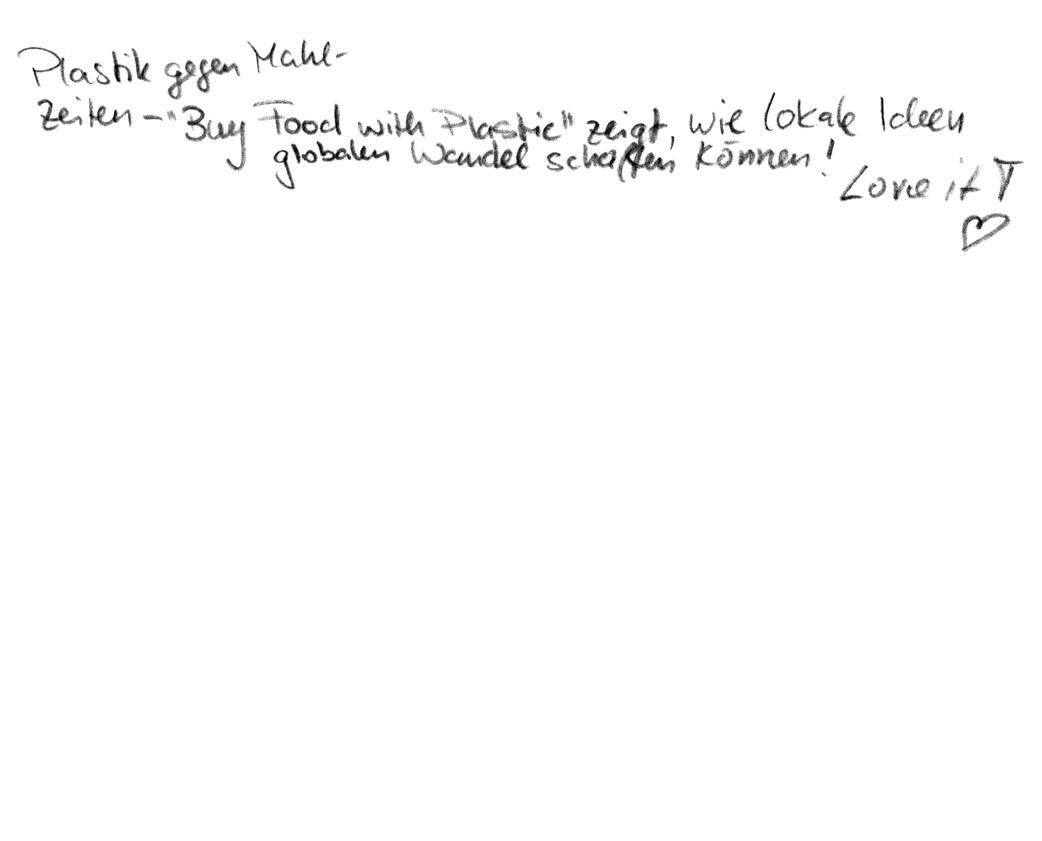 Plastik gegen Mahl-
zeiten - "Buy Food with Plastic" zeigt, wie lokale Ideen
globalen Wandel schaffen können!
Love it T
♡